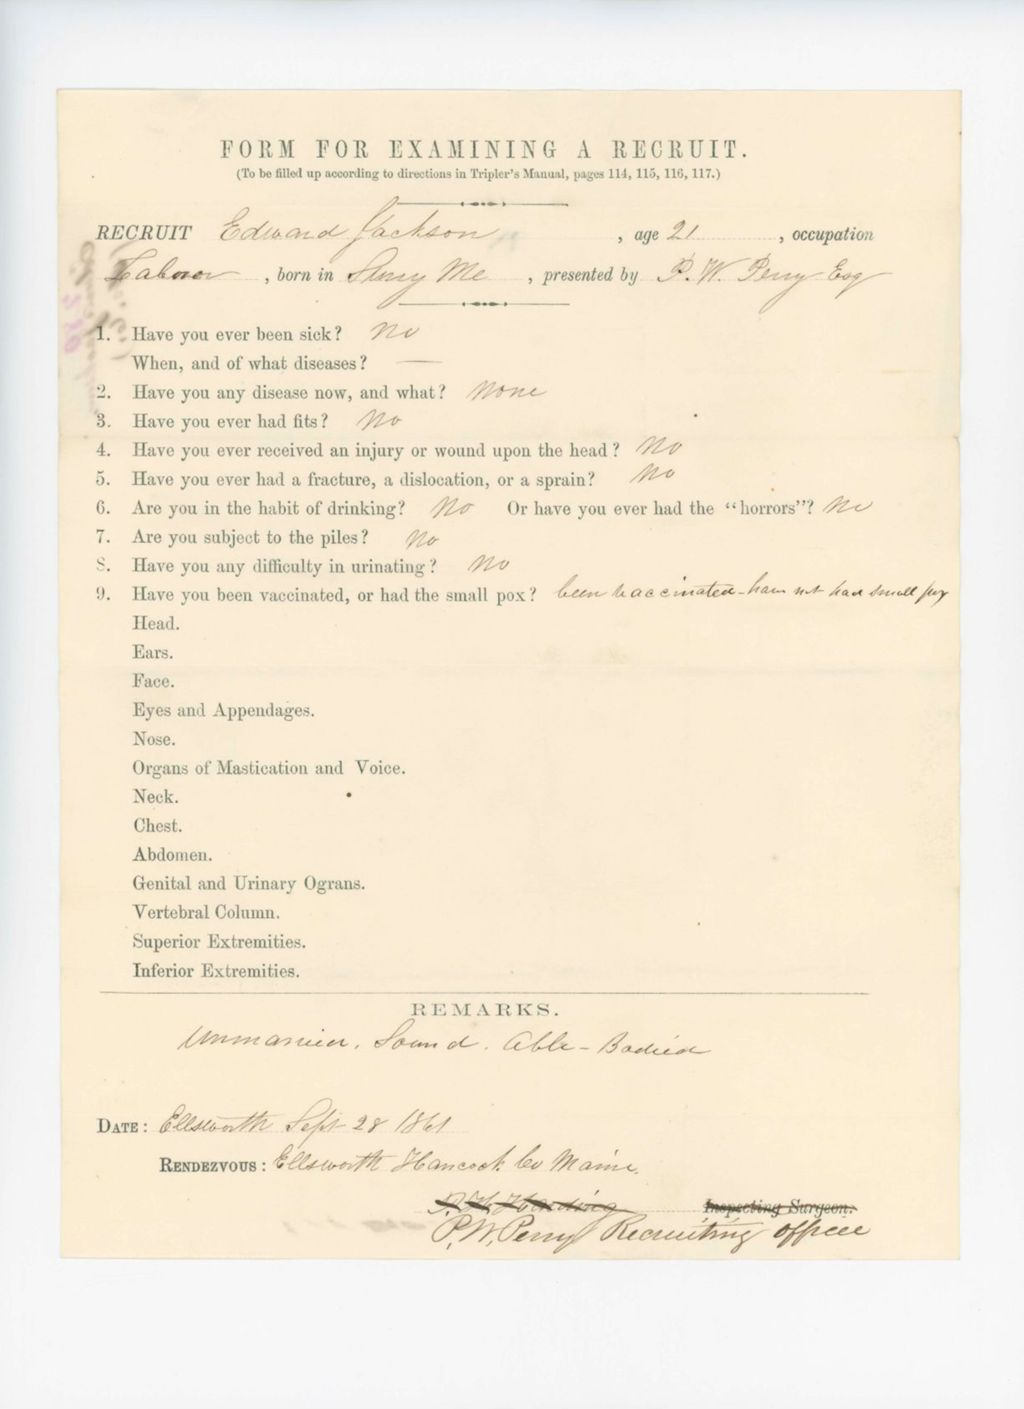 FORM FOR EXAMINING A RECRUIT.
(To be filled up according to directions in Tripler's Manual, pages 114, 115, 116, 117.)
RECRUIT Edward Jackson, age 21, occupation
Laborer, born in Surry Me, presented by P. W. Perry Esq
1. Have you ever been sick? No
When, and of what diseases? —
2. Have you any disease now, and what? None
3. Have you ever had fits? No
4. Have you ever received an injury or wound upon the head? No
5. Have you ever had a fracture, a dislocation, or a sprain? No
6. Are you in the habit of drinking? No Or have you ever had the "horrors"? No
7. Are you subject to the piles? No
8. Have you any difficulty in urinating? No
9. Have you been vaccinated, or had the small pox? been vaccinated - have not had small pox
Head.
Ears.
Face.
Eyes and Appendages.
Nose.
Organs of Mastication and Voice.
Neck.
Chest.
Abdomen.
Genital and Urinary Ograns.
Vertebral Column.
Superior Extremities.
Inferior Extremities.
REMARKS.
Unmarried. Sound. Able-Bodied
DATE: Ellsworth Sept 28 1861
RENDEZVOUS: Ellsworth Hancock Co Maine.
P. H. Harding Inspecting Surgeon.
P. W. Perry Recruiting Officer